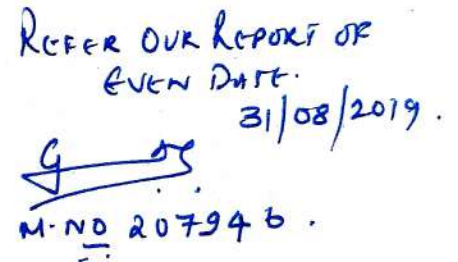 REFER OUR REPORT OF
EVEN DATE.
31/08/2019.
M.NO 207946.